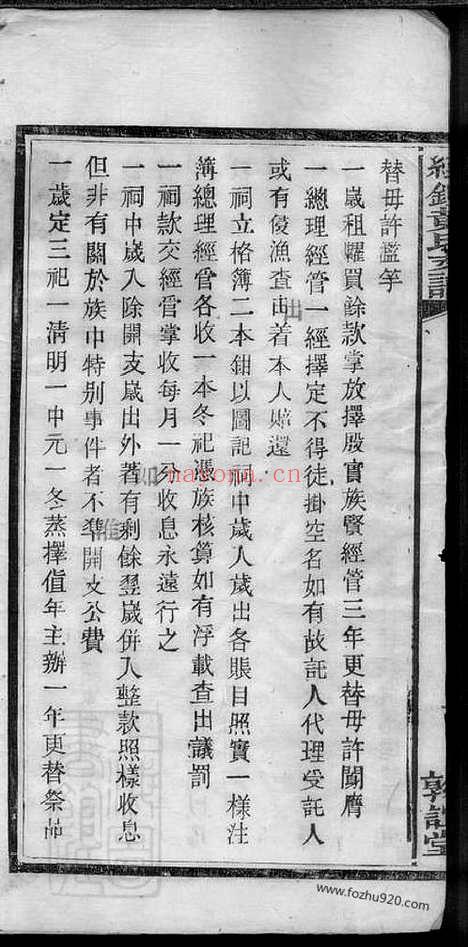 替毋許濫竽
一歲租糶買餘款掌放擇殷實族賢經管三年更替毋許鬮膺
一總理經管一經擇定不得徒掛空名如有故託人代理受託人
或有侵漁查出着本人賠還
一祠立格簿二本鈐以圖記祠中歲入歲出各賬目照實一樣注
簿總理經管各收一本冬祀憑族核算如有浮載查出議罰
一祠款交經管掌收每月一分收息永遠行之
一祠中歲入除開支歲出外若有剩餘翌歲併入整款照樣收息
但非有關於族中特別事件者不準開支公費
一歲定三祀一清明一中元一冬蒸擇值年主辦一年更替祭品
黃氏支譜
敦誼堂
nayona.cn
www.fozhu920.com